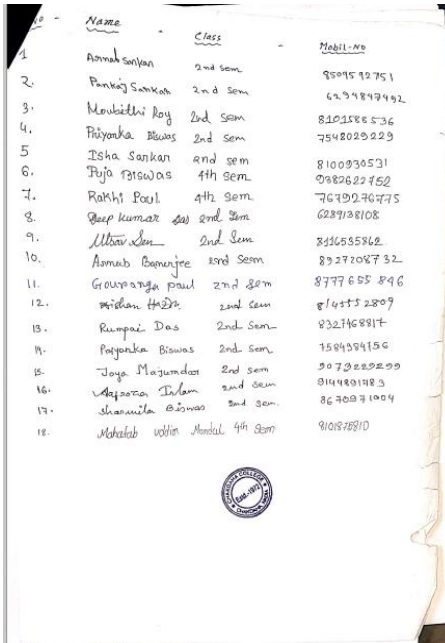 No - Name - Class - Mobil-No
1 Arnab Sarkar 2nd Sem 8509592751
2. Pankaj Sarkar 2nd Sem 6294847492
3. Moubithi Roy 2nd Sem 8101588536
4. Priyanka Biswas 2nd Sem 7548029229
5 Isha Sarkar 2nd sem 8100930531
6. Puja Biswas 4th sem 9382622752
7. Rakhi Paul 4th Sem 7679276775
8. Deep kumar das 2nd Sem 6289128108
9. Utsav Sen 2nd Sem 8116535862
10. Arnab Banerjee 2nd Sem 8927208732
11. Gouranga paul 2nd sem 8777655846
12. 2nd Sem
13. Rumpai Das 2nd Sem 8327468817
14. Priyanka Biswas 2nd Sem 7584984756
15. Joya Majumdar 2nd sem 9073229299
16. Islam 2nd Sem 9144891783
17. Sharmila Biswas 2nd Sem. 8670971004
18. Mahatab uddin Mondal 4th Sem 8101875810
CHAKDAHA COLLEGE
Estd.-1972